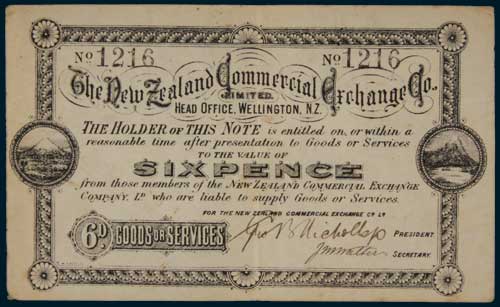 No 1216 No 1216
The New Zealand Commercial Exchange Co.
LIMITED.
HEAD OFFICE, WELLINGTON, N.Z.
THE HOLDER OF THIS NOTE is entitled on, or within a
reasonable time after presentation to Goods or Services
TO THE VALUE OF
SIXPENCE
from those members of the NEW ZEALAND COMMERCIAL EXCHANGE
COMPANY, LD who are liable to supply Goods or Services.
FOR THE NEW ZEALAND COMMERCIAL EXCHANGE CO LD
6D GOODS OR SERVICES
Geo B Nicholls PRESIDENT.
SECRETARY.